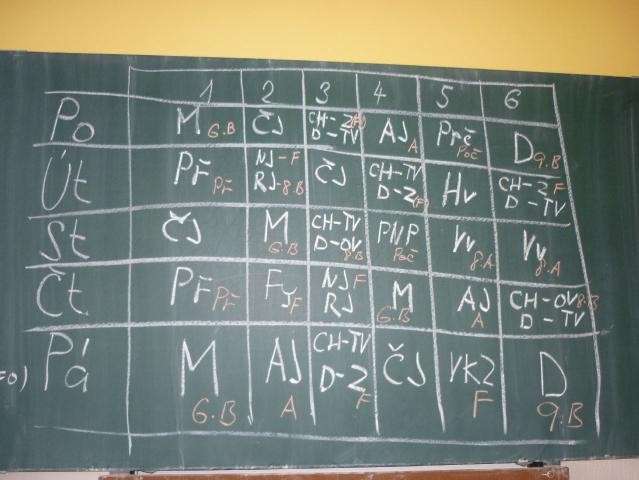 1 2 3 4 5 6
Po M 6.B ČJ CH-Z(F) D-TV AJ A Prč Poč D 9.B
Út Př Př NJ-F RJ-8.B ČJ CH-TV D-Z(F) Hv CH-Z F D-TV
St ČJ M 6.B CH-TV D-OV 8.B Poč Vv 8.A Vv 8.A
Čt Př Př Fy F NJ F RJ M 6.B AJ A CH-OV 8.B D-TV
Pá M 6.B AJ A CH-TV D-Z F ČJ VKZ F D 9.B